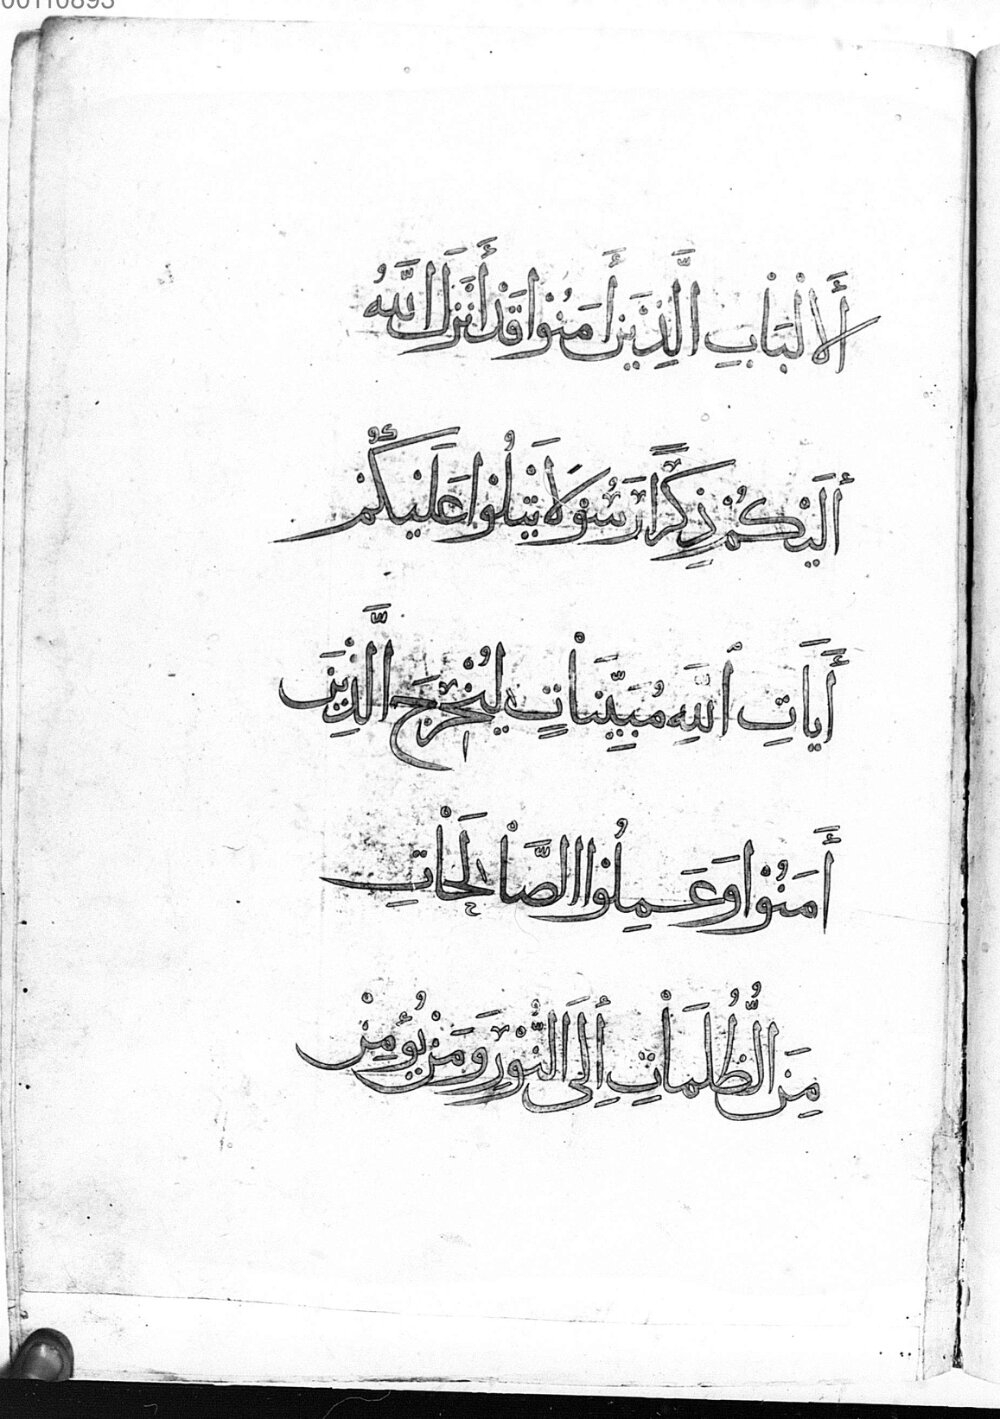 00110893
أَلْأَلْبَابِ الَّذِينَ أَمَنُوا قَدْ أَنْزَلَ اللَّهُ
إِلَيْكُمْ ذِكْرًا رَسُولًا يَتْلُوا عَلَيْكُمْ
أَيَاتِ اللَّهِ مُبَيِّنَاتٍ لِيُخْرِجَ الَّذِينَ
أَمَنُوا وَعَمِلُوا الصَّالِحَاتِ
مِنَ الظُّلُمَاتِ إِلَى النُّورِ وَمَنْ يُؤْمِنْ